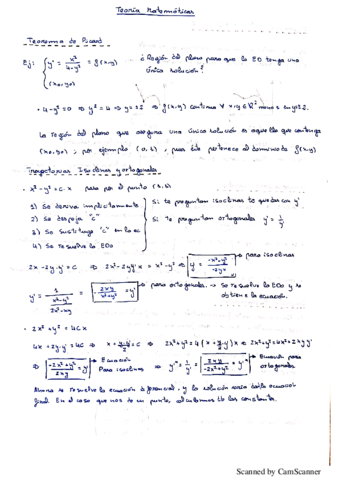 Teoría Matemáticas
Teorema de Picard
Ej: { y' = x²/(4-y²) = f(x,y)
(x₀,y₀)
¿Región del plano para que la ED tenga una
única solución?
· 4-y²=0 ⇒ y²=4 ⇒ y=±2 ⇒ f(x,y) continua ∀ x,y ∈ ℝ² menos en y=±2.
La región del plano que asegura una única solución es aquella que contenga
(x₀,y₀), por ejemplo pues pertenece al dominio de f(x,y)
Trayectorias Isoclinas y ortogonales
· x²-y²=c·x para por el punto
1) Se deriva implícitamente
2) Se despeja "c"
3) Se sustituye "c" en la ec
4) Se resuelve la EDO
Si te preguntan isoclinas te quedas con y'
Si te preguntan ortogonales y'=1/y'
2x-2y·y'=c ⇒ 2x²-2yy'x = x²-y² ⇒ y' = (-x²+y²)/(-2yx) → para isoclinas
→ para ortogonales. → Se resuelve la EDO y se
obtiene la ecuación.
· 2x²+y²=4Cx
4x+2y·y'=4C ⇒ x+y·y'/2=C ⇒
⇒ (-2x²+y²)/(2xy)=y' → Ecuación
Para isoclinas
→ Ecuación para
ortogonales
Ahora se resuelve la ecuación diferencial, y la solución sería dicha ecuación
final. En el caso que nos de un punto, calculamos las constantes.
Scanned by CamScanner